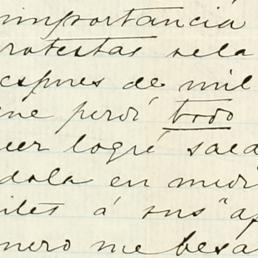 importancia
rotestas rela
espues de mil
me perdi todo
eer logré saca
dola en medi
iles á sus "ap
nero me besa